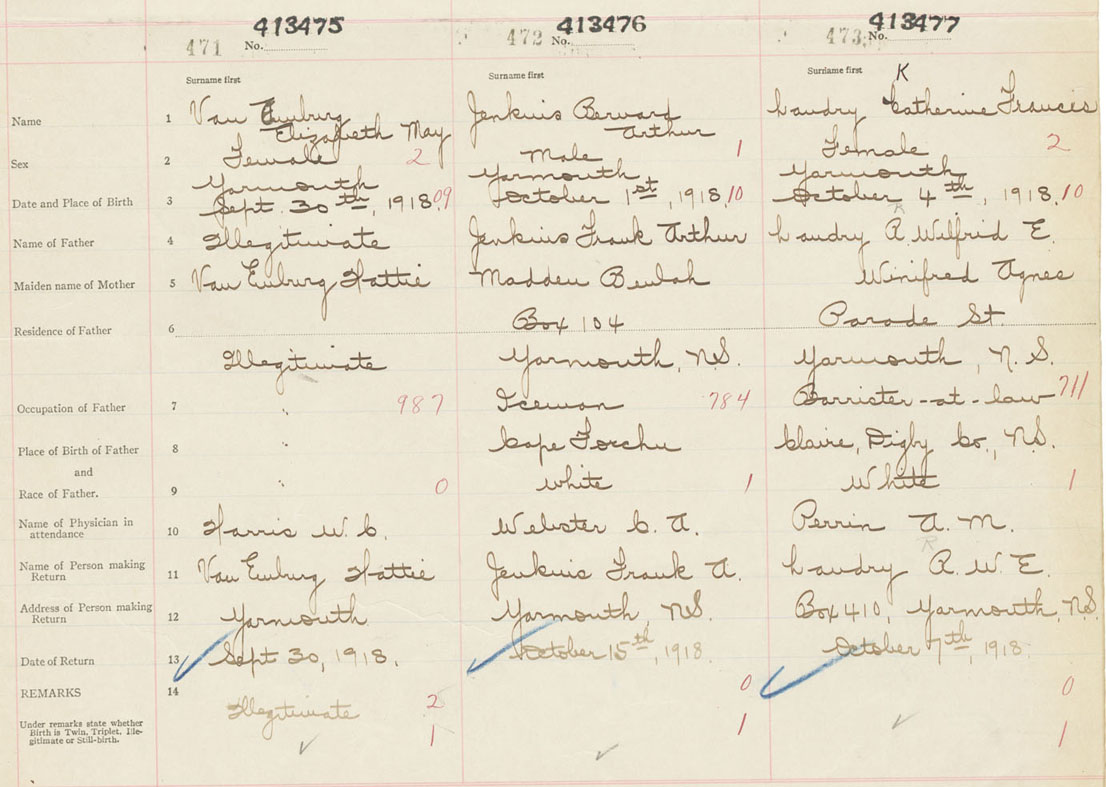 413475 413476 413477
471 No. 472 No. 473 No.
Surname first Surname first Surname first K
Name 1 Van Emburg Jenkins Bernard Landry Catherine Frances
Elizabeth May Arthur
Sex 2 Female 2 Male 1 Female 2
Yarmouth Yarmouth Yarmouth
Date and Place of Birth 3 Sept. 30th, 1918. 09 October 1st, 1918. 10 October 4th, 1918. 10
Name of Father 4 Illegitimate Jenkins Frank Arthur Landry R Wilfrid E.
Maiden name of Mother 5 Van Emburg Hattie Madden Beulah Winifred Agnes
Residence of Father 6 Box 104 Parade St.
Illegitimate Yarmouth, N.S. Yarmouth, N.S.
Occupation of Father 7 " 987 Iceman 784 Barrister-at-law 711
Place of Birth of Father 8 " Cape Forchu Claire, Digby Co., N.S.
and
Race of Father. 9 " 0 White 1 White 1
Name of Physician in
attendance 10 Harris W. C. Webster C. A. Perrin A. M.
Name of Person making
Return 11 Van Emburg Hattie Jenkins Frank A. Landry R. W. E.
Address of Person making
Return 12 Yarmouth Yarmouth, N.S. Box 410, Yarmouth, N.S.
Date of Return 13 Sept 30, 1918. October 15th, 1918. October 7th, 1918.
REMARKS 14 Illegitimate 2 0 0
Under remarks state whether
Birth is Twin, Triplet, Ille-
gitimate or Still-birth. 1 1 1